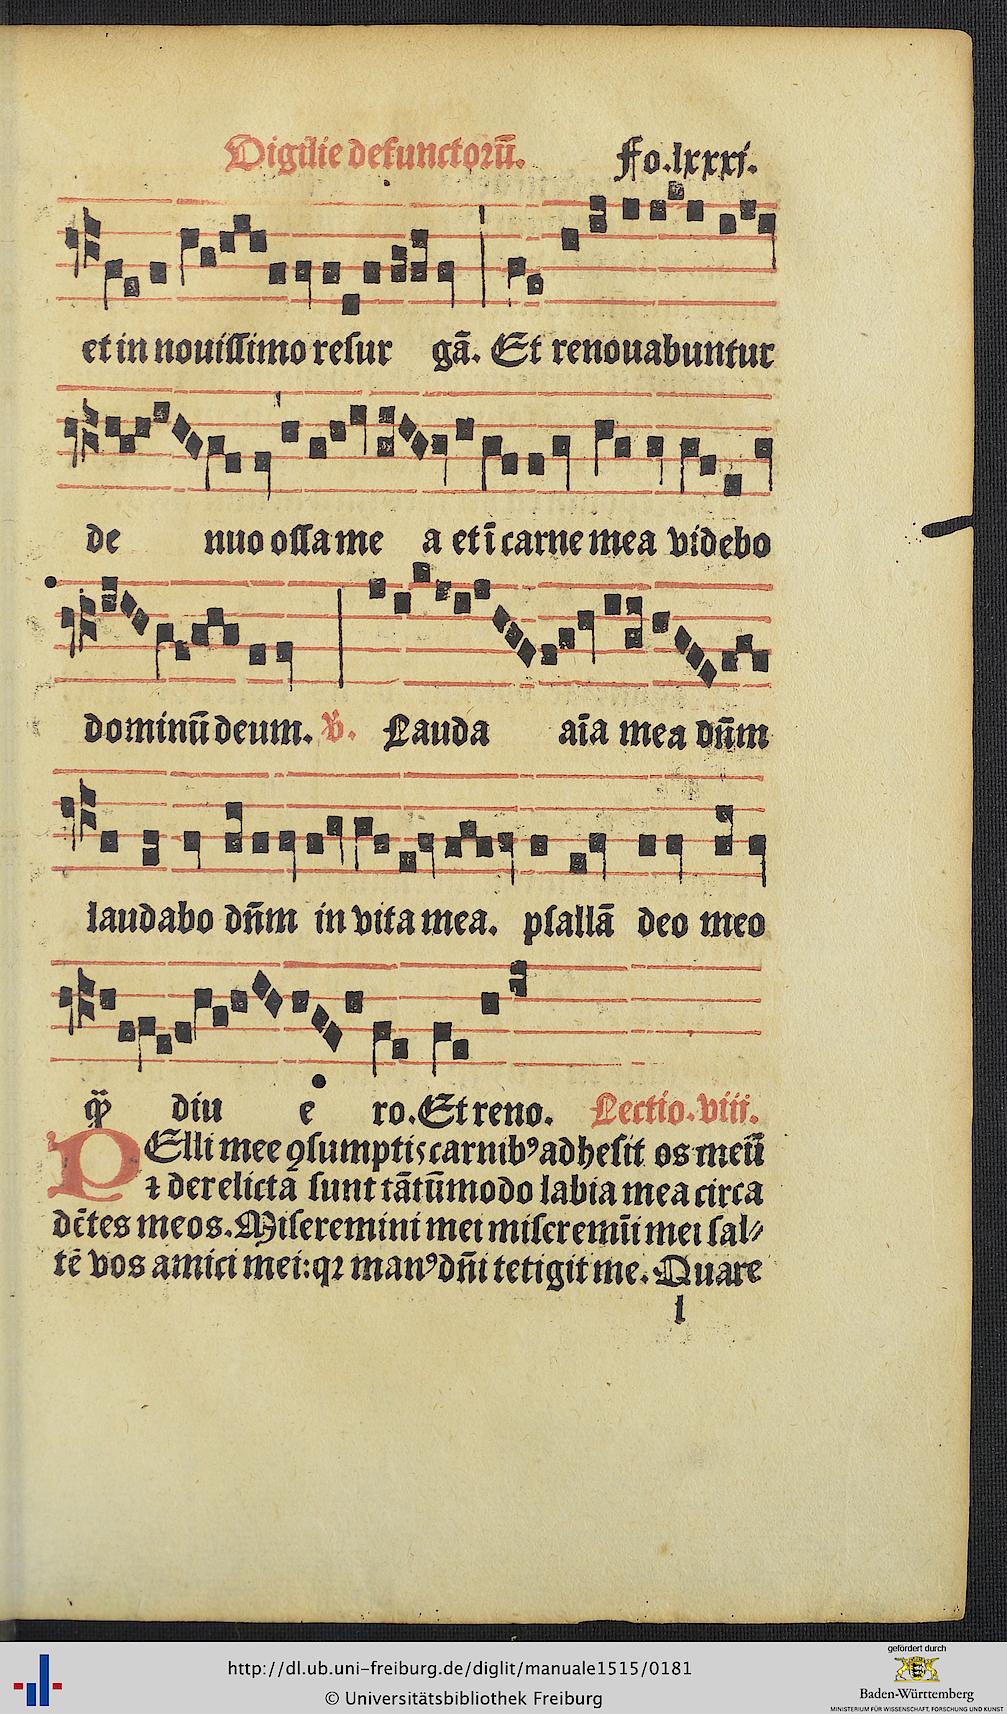 Vigilie defunctorū. Fo.lxxxi.
et in nouissimo resur gā. Et renouabuntur
de nuo ossa me a et ī carne mea videbo
dominū deum. ꝟ. Lauda aīa mea dn̄m
laudabo dn̄m in vita mea. psallā deo meo
diu e ro. Et reno. Lectio. viii.
PElli mee ꝯsumptis carnibꝰ adhesit os meū
⁊ derelicta sunt tātūmodo labia mea circa
dētes meos. Miseremini mei miseremīi mei sal⸗
tē vos amici mei: qꝛ manꝰ dn̄i tetigit me. Quare
l
http://dl.ub.uni-freiburg.de/diglit/manuale1515/0181
© Universitätsbibliothek Freiburg
gefördert durch
Baden-Württemberg
MINISTERIUM FÜR WISSENSCHAFT, FORSCHUNG UND KUNST